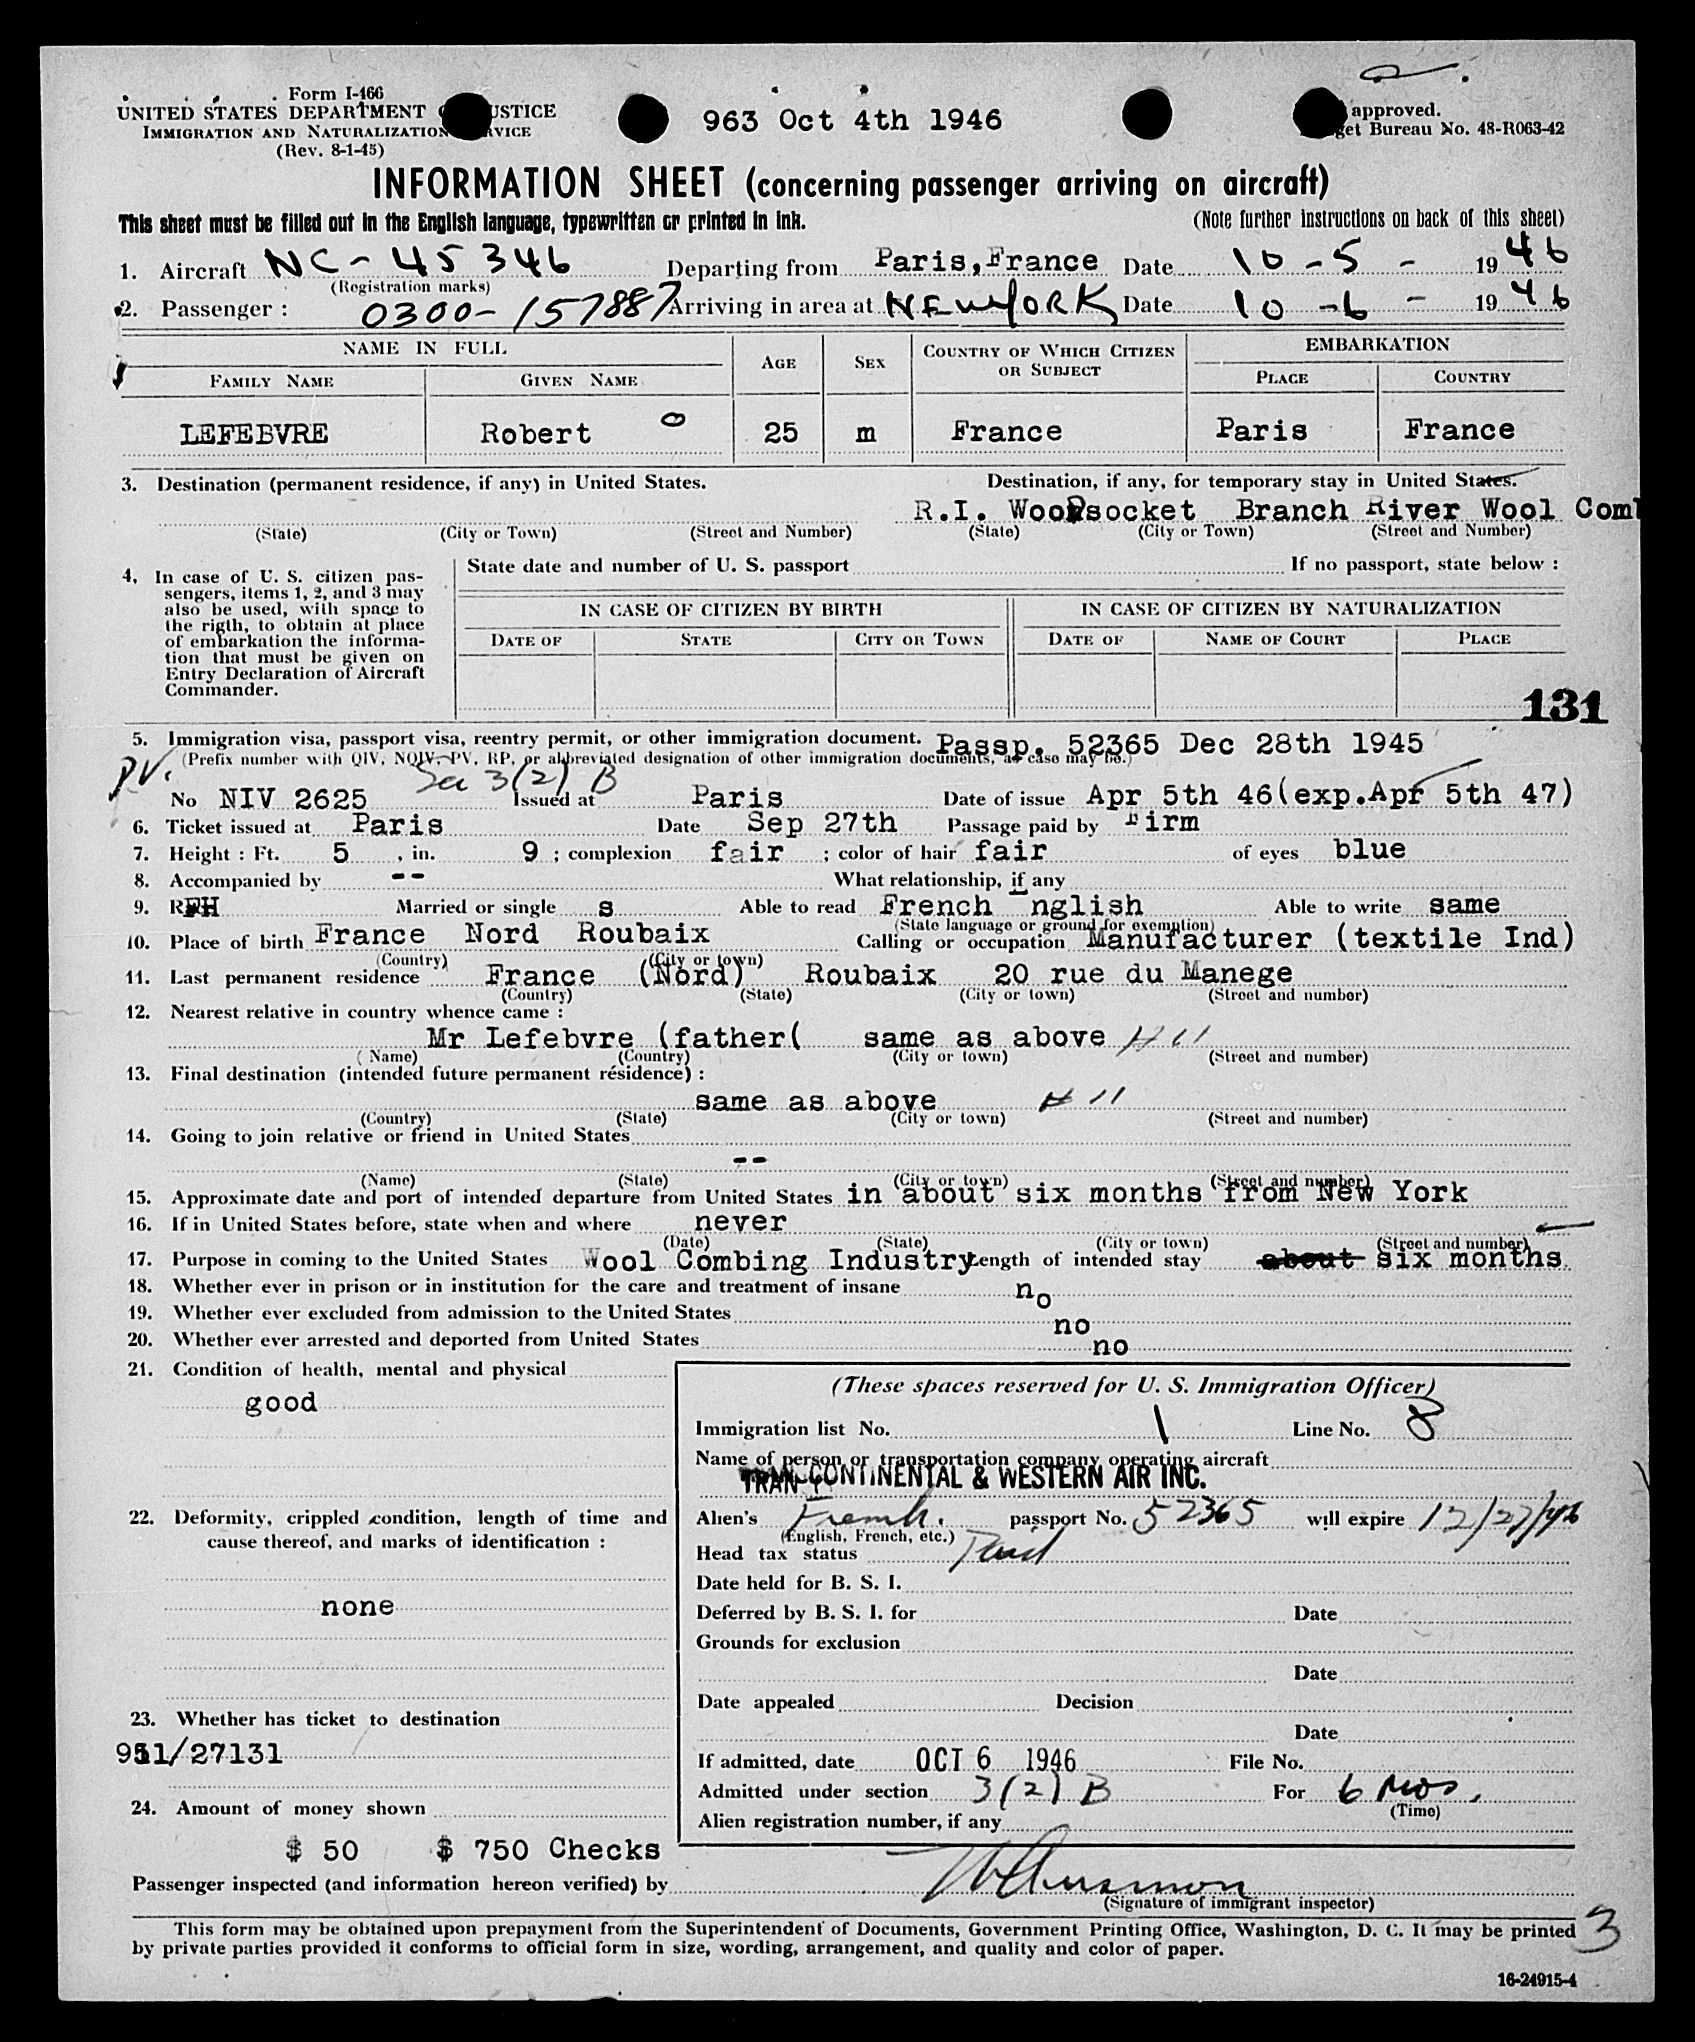 Form I-466
UNITED STATES DEPARTMENT USTICE
IMMIGRATION AND NATURALIZATION RVICE
(Rev. 8-1-45)
963 Oct 4th 1946
approved.
get Bureau No. 48-R063-42
INFORMATION SHEET (concerning passenger arriving on aircraft)
This sheet must be filled out in the English language, typewritten or printed in ink. (Note further instructions on back of this sheet)
1. Aircraft NC-45346 Departing from Paris, France Date 10-5- 1946
(Registration marks)
2. Passenger : 0300-157887 Arriving in area at NEW YORK Date 10-6- 1946
NAME IN FULL AGE SEX COUNTRY OF WHICH CITIZEN OR SUBJECT EMBARKATION
FAMILY NAME GIVEN NAME PLACE COUNTRY
LEFEBVRE Robert 25 m France Paris France
3. Destination (permanent residence, if any) in United States. Destination, if any, for temporary stay in United States.
R.I. Woonsocket Branch River Wool Comb
(State) (City or Town) (Street and Number) (State) (City or Town) (Street and Number)
4. In case of U. S. citizen pas-
sengers, items 1, 2, and 3 may
also be used, with space to
the rigth, to obtain at place
of embarkation the informa-
tion that must be given on
Entry Declaration of Aircraft
Commander.
State date and number of U. S. passport If no passport, state below :
IN CASE OF CITIZEN BY BIRTH IN CASE OF CITIZEN BY NATURALIZATION
DATE OF STATE CITY OR TOWN DATE OF NAME OF COURT PLACE
131
5. Immigration visa, passport visa, reentry permit, or other immigration document. Passp. 52365 Dec 28th 1945
(Prefix number with QIV, NQIV, PV, RP, or abbreviated designation of other immigration documents, as case may be.)
PV. Sec 3(2) B
No NIV 2625 Issued at Paris Date of issue Apr 5th 46(exp.Apr 5th 47)
6. Ticket issued at Paris Date Sep 27th Passage paid by Firm
7. Height : Ft. 5 , in. 9 ; complexion fair ; color of hair fair of eyes blue
8. Accompanied by -- What relationship, if any
9. Married or single s Able to read French nglish Able to write same
(State language or ground for exemption)
10. Place of birth France Nord Roubaix Calling or occupation Manufacturer (textile Ind)
(Country) (City or town)
11. Last permanent residence France (Nord) Roubaix 20 rue du Manege
(Country) (State) (City or town) (Street and number)
12. Nearest relative in country whence came :
Mr Lefebvre (father( same as above # 11
(Name) (Country) (City or town) (Street and number)
13. Final destination (intended future permanent résidence) :
same as above # 11
(Country) (State) (City or town) (Street and number)
14. Going to join relative or friend in United States
--
(Name) (State) (City or town) (Street and number)
15. Approximate date and port of intended departure from United States in about six months from New York
16. If in United States before, state when and where never
(Date) (State) (City or town) (Street and number)
17. Purpose in coming to the United States Wool Combing Industry Length of intended stay about six months
18. Whether ever in prison or in institution for the care and treatment of insane no
19. Whether ever excluded from admission to the United States no
20. Whether ever arrested and deported from United States no
21. Condition of health, mental and physical
good
22. Deformity, crippled condition, length of time and
cause thereof, and marks of identification :
none
23. Whether has ticket to destination
951/27131
24. Amount of money shown
$ 50 $ 750 Checks
(These spaces reserved for U. S. Immigration Officer)
Immigration list No. 1 Line No. 8
Name of person or transportation company operating aircraft
TRANSCONTINENTAL & WESTERN AIR INC.
Alien's French. passport No. 52365 will expire 12/27/46
(English, French, etc.)
Head tax status Paid
Date held for B. S. I.
Deferred by B. S. I. for Date
Grounds for exclusion
Date
Date appealed Decision
Date
If admitted, date OCT 6 1946 File No.
Admitted under section 3(2) B For 6 Mos.
(Time)
Alien registration number, if any
Passenger inspected (and information hereon verified) by
(Signature of immigrant inspector)
This form may be obtained upon prepayment from the Superintendent of Documents, Government Printing Office, Washington, D. C. It may be printed
by private parties provided it conforms to official form in size, wording, arrangement, and quality and color of paper.
3
16-24915-4